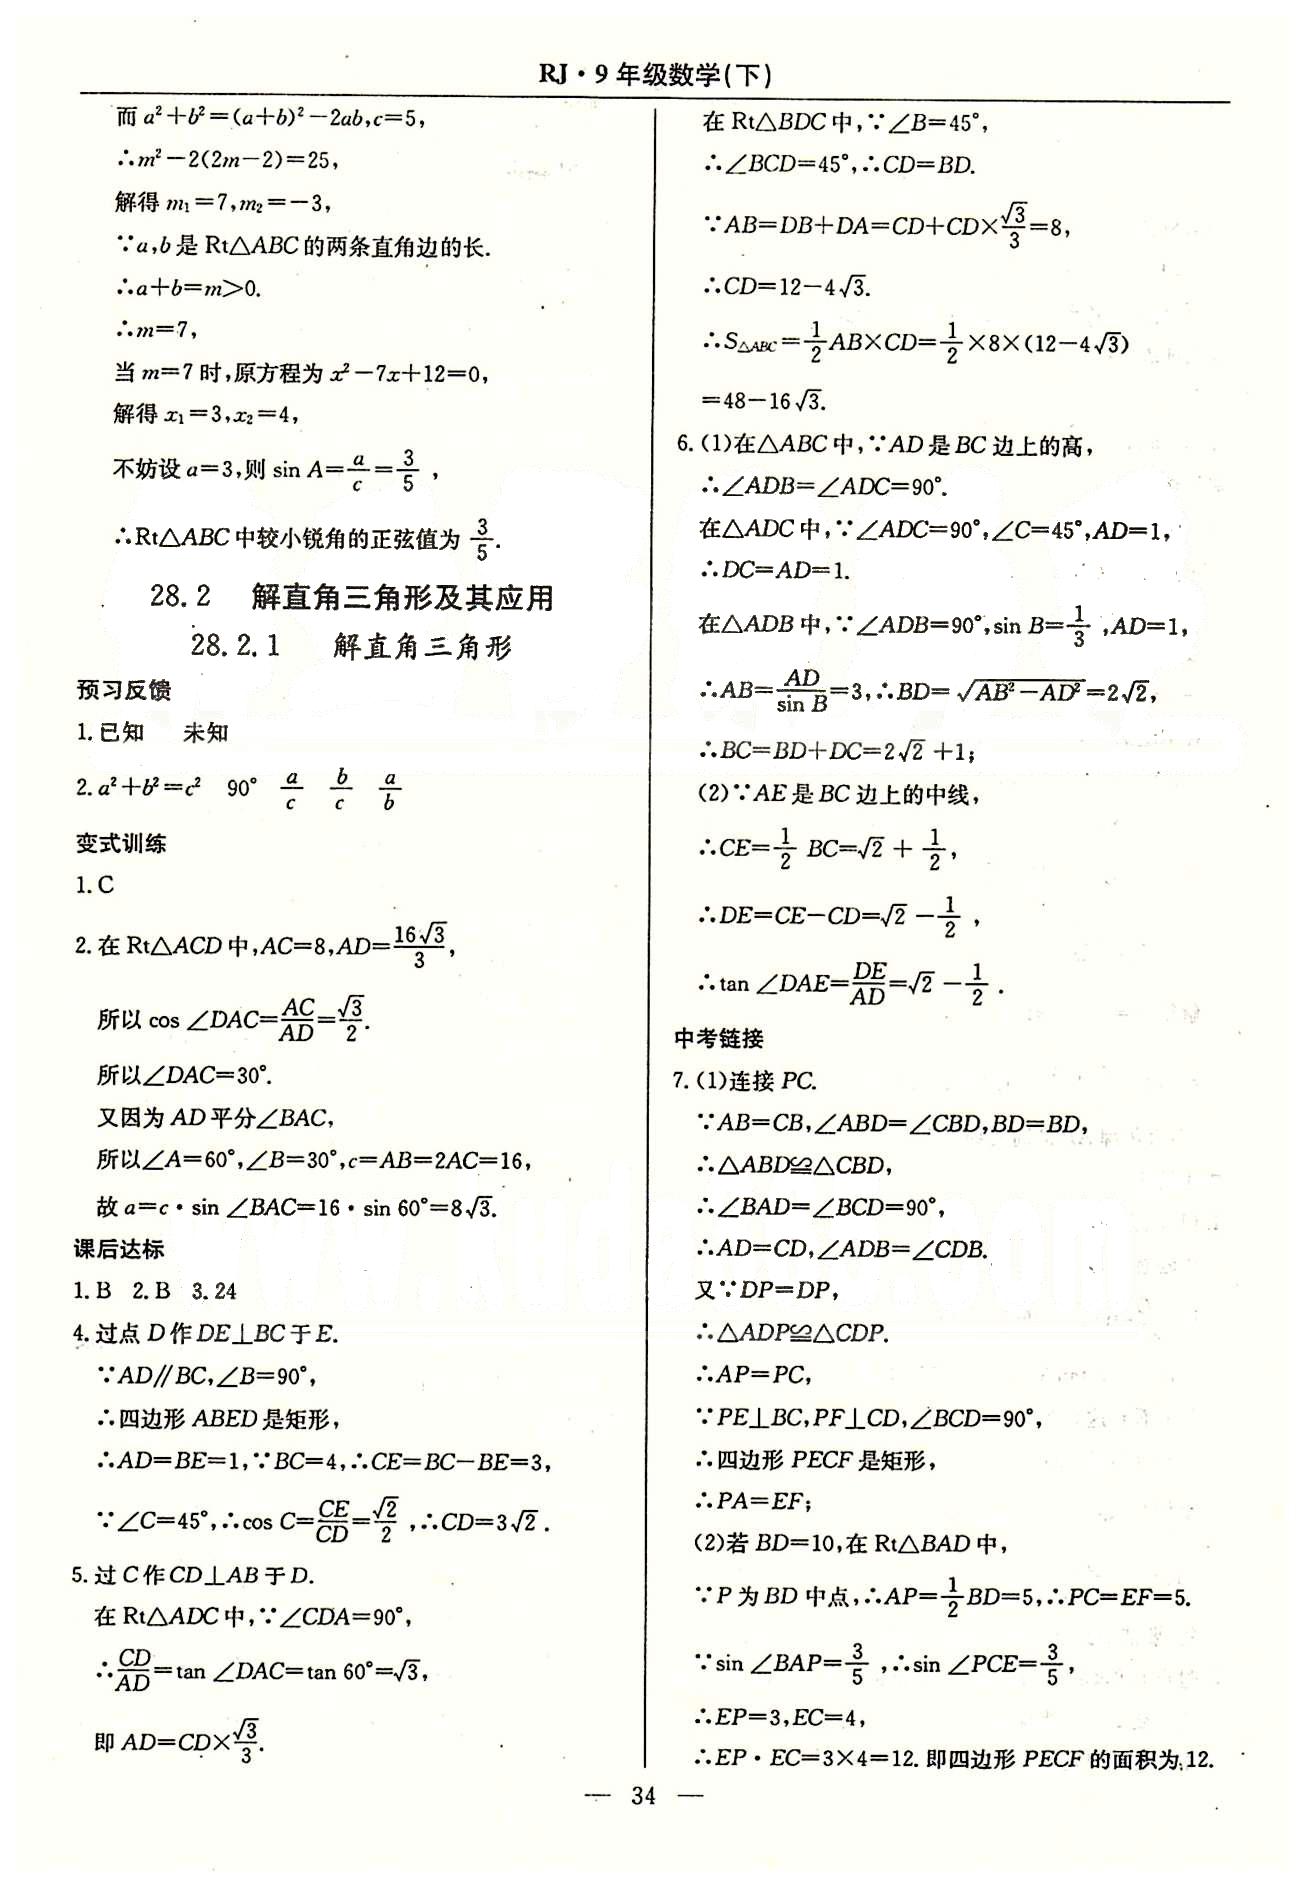 RJ·9年级数学(下)
而 a²+b²=(a+b)²-2ab,c=5,
∴m²-2(2m-2)=25,
解得 m₁=7,m₂=-3,
∵a,b是 Rt△ABC的两条直角边的长.
∴a+b=m>0.
∴m=7,
当 m=7 时,原方程为 x²-7x+12=0,
解得 x₁=3,x₂=4,
不妨设 a=3,则 sin A=a/c=3/5,
∴Rt△ABC中较小锐角的正弦值为 3/5.
28.2 解直角三角形及其应用
28.2.1 解直角三角形
预习反馈
1.已知 未知
2.a²+b²=c² 90° a/c b/c a/b
变式训练
1.C
2.在 Rt△ACD中,AC=8,AD=16√3/3,
所以 cos∠DAC=AC/AD=√3/2.
所以∠DAC=30°.
又因为 AD平分∠BAC,
所以∠A=60°,∠B=30°,c=AB=2AC=16,
故 a=c·sin∠BAC=16·sin 60°=8√3.
课后达标
1.B 2.B 3.24
4.过点 D作DE⊥BC于E.
∵AD∥BC,∠B=90°,
∴四边形 ABED是矩形,
∴AD=BE=1,∵BC=4,∴CE=BC-BE=3,
∵∠C=45°,∴cos C=CE/CD=√2/2,∴CD=3√2.
5.过 C作CD⊥AB于D.
在 Rt△ADC中,∵∠CDA=90°,
∴CD/AD=tan∠DAC=tan 60°=√3,
即 AD=CD×√3/3.
在 Rt△BDC中,∵∠B=45°,
∴∠BCD=45°,∴CD=BD.
∵AB=DB+DA=CD+CD×√3/3=8,
∴CD=12-4√3.
∴S△ABC=1/2AB×CD=1/2×8×(12-4√3)
=48-16√3.
6.(1)在△ABC中,∵AD是BC边上的高,
∴∠ADB=∠ADC=90°.
在△ADC中,∵∠ADC=90°,∠C=45°,AD=1,
∴DC=AD=1.
在△ADB中,∵∠ADB=90°,sin B=1/3,AD=1,
∴AB=AD/sin B=3,∴BD=√(AB²-AD²)=2√2,
∴BC=BD+DC=2√2+1;
(2)∵AE是BC边上的中线,
∴CE=1/2BC=√2+1/2,
∴DE=CE-CD=√2-1/2,
∴tan∠DAE=DE/AD=√2-1/2.
中考链接
7.(1)连接 PC.
∵AB=CB,∠ABD=∠CBD,BD=BD,
∴△ABD≌△CBD,
∴∠BAD=∠BCD=90°,
∴AD=CD,∠ADB=∠CDB.
又∵DP=DP,
∴△ADP≌△CDP.
∴AP=PC,
∵PE⊥BC,PF⊥CD,∠BCD=90°,
∴四边形 PECF是矩形,
∴PA=EF;
(2)若 BD=10,在 Rt△BAD中,
∵P为BD中点,∴AP=1/2BD=5,∴PC=EF=5.
∵sin∠BAP=3/5,∴sin∠PCE=3/5,
∴EP=3,EC=4,
∴EP·EC=3×4=12.即四边形PECF的面积为12.
— 34 —